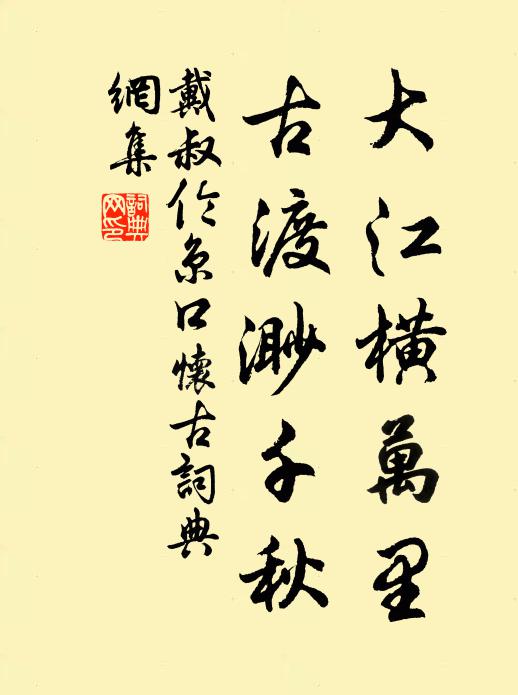 大江橫萬里
古渡渺千秋
戴叔倫京口懷古詞典
網集
詞典
网印